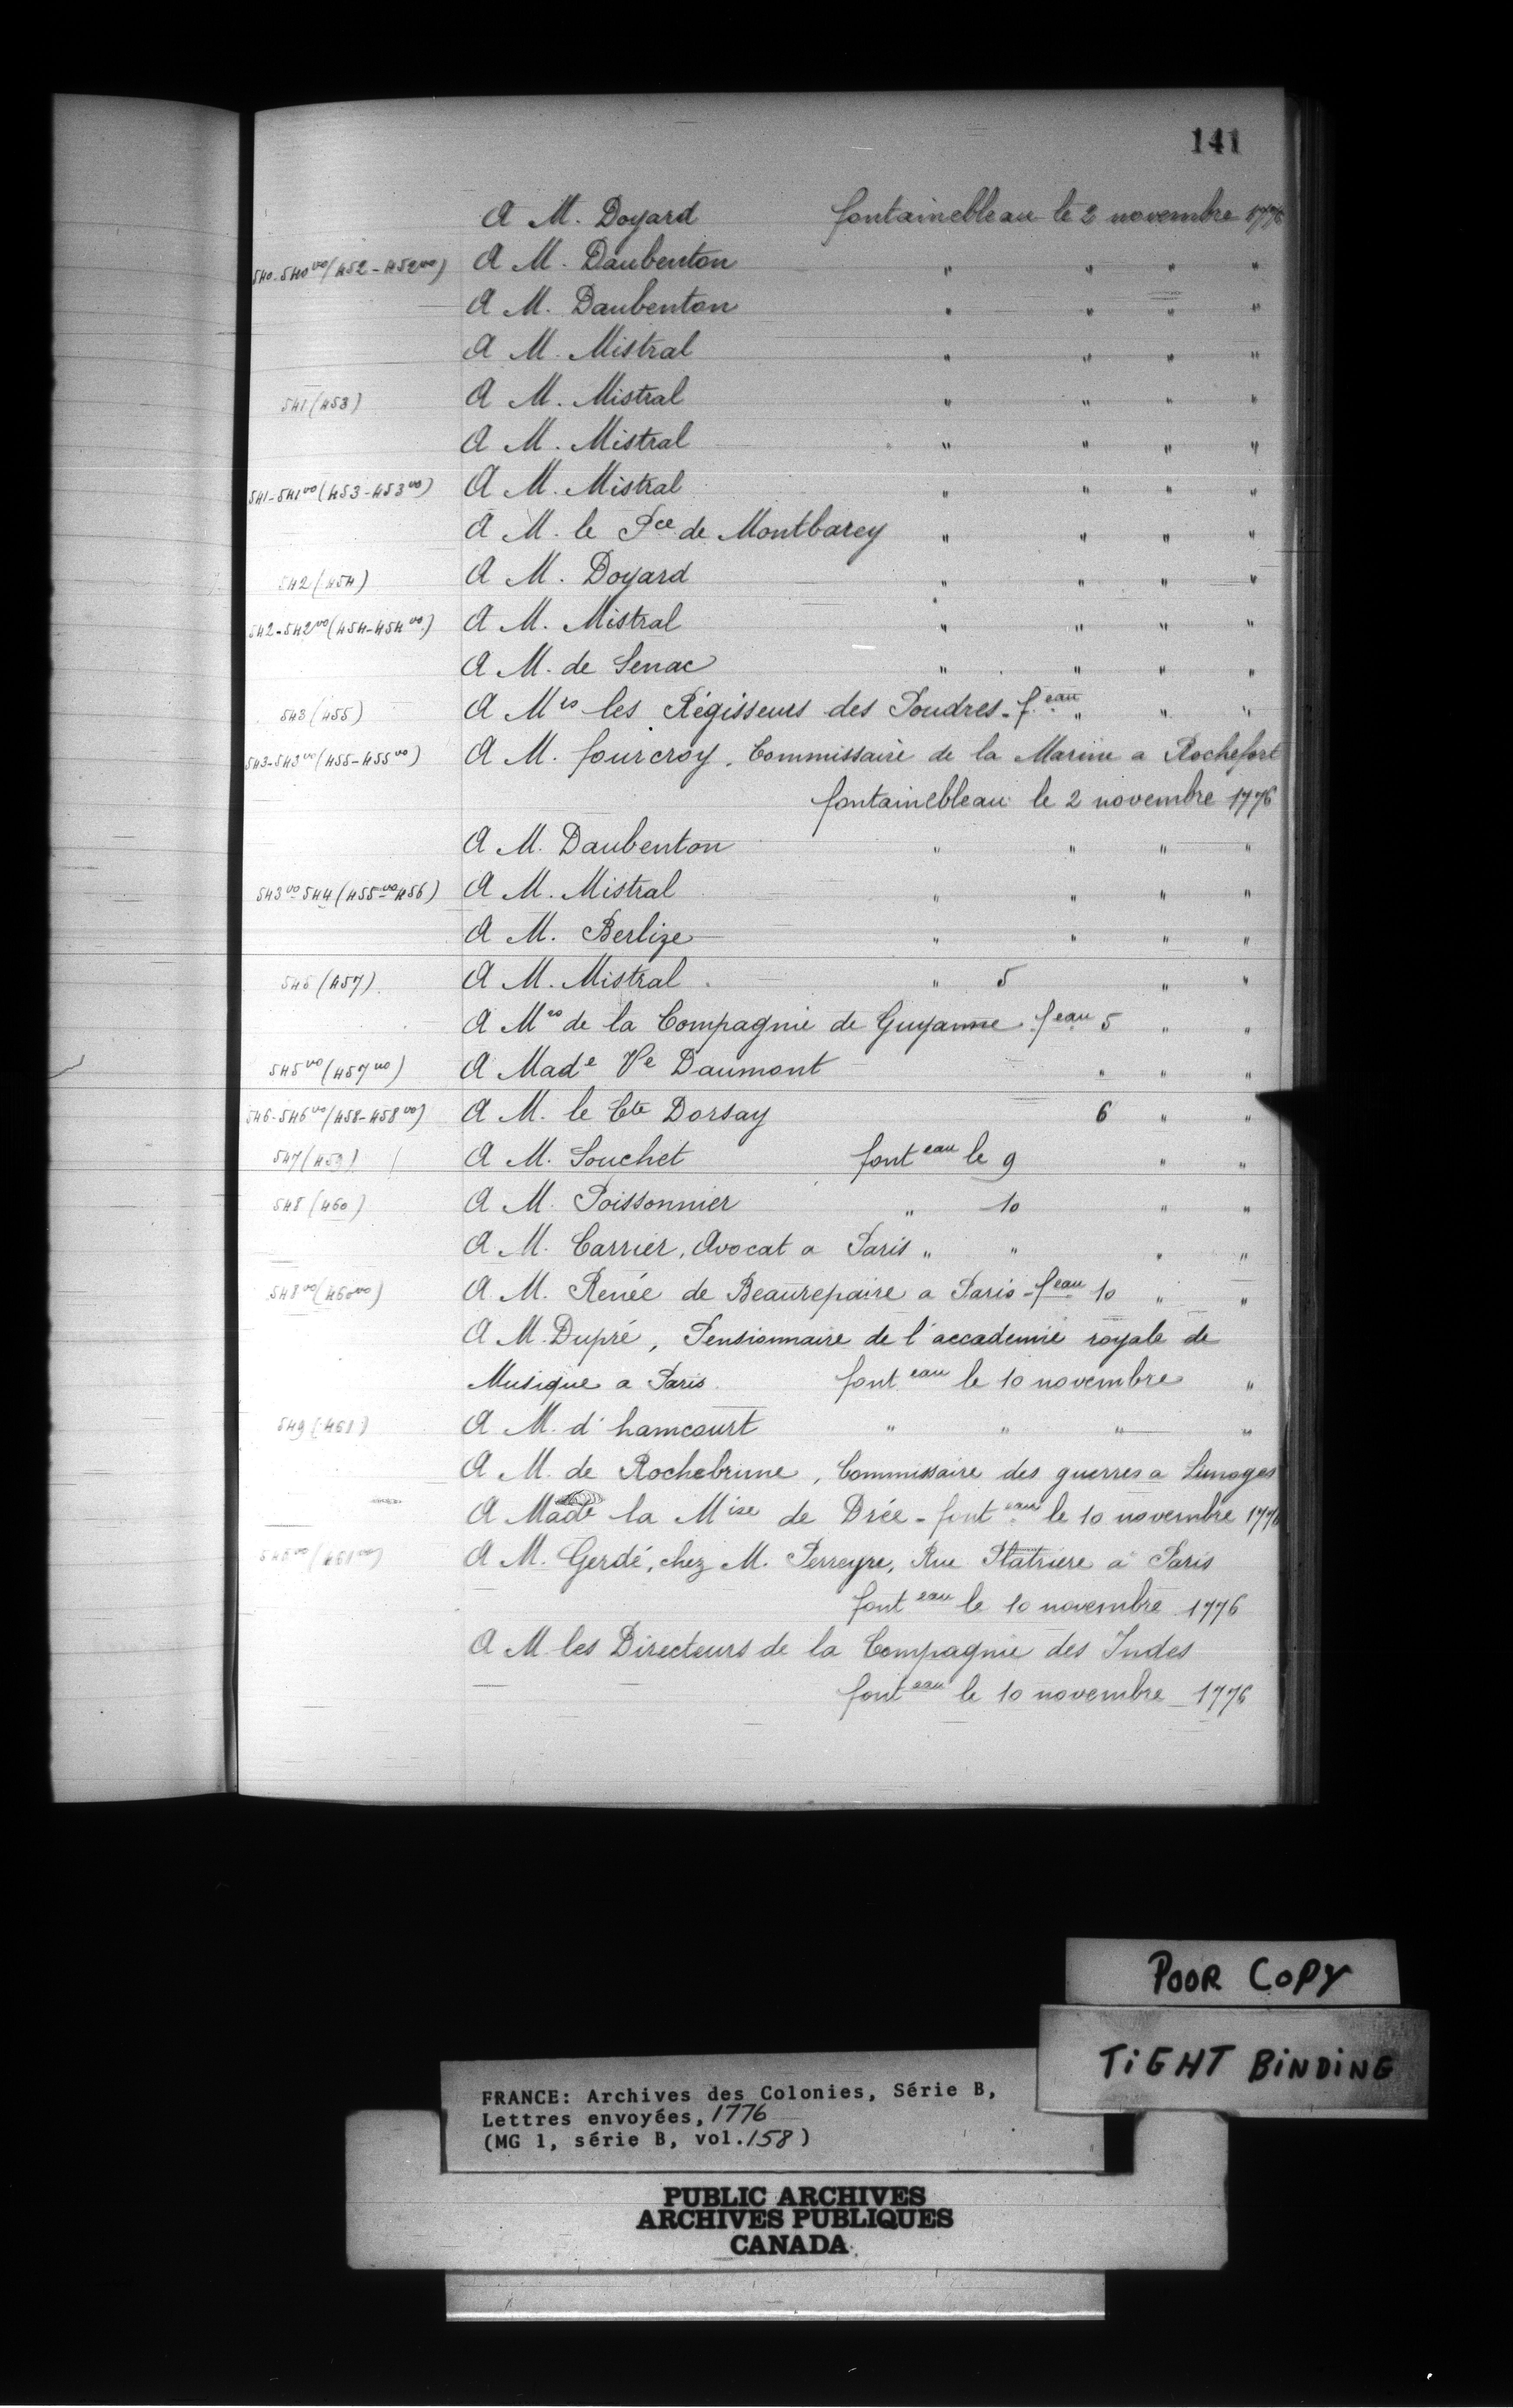 141
A M. Doyard fontainebleau le 2 novembre 1776
540-540vo (452-452vo) A M. Daubenton " " " "
A M. Daubenton " " " "
A M. Mistral " " " "
541 (453) A M. Mistral " " " "
A M. Mistral " " " "
541-541vo (453-453vo) A M. Mistral " " " "
A M. le Pce de Montbarey " " " "
542 (454) A M. Doyard " " " "
542-542vo (454-454vo) A M. Mistral " " " "
A M. de Senac " " " "
543 (455) A Mrs les Régisseurs des Poudres - feau " " "
543-543vo (455-455vo) A M. fourcroy, Commissaire de la Marine a Rochefort
fontainebleau le 2 novembre 1776
A M. Daubenton " " " "
543vo-544 (455vo-456) A M. Mistral " " " "
A M. Berlize " " " "
545 (457) A M. Mistral " 5 " "
A Mrs de la Compagnie de Guyanne feau 5 " "
545vo (457vo) A Made Ve Daumont " " "
546-546vo (458-458vo) A M. le Cte Dorsay 6 " "
547 (459) A M. Souchet fonteau le 9 " "
548 (460) A M. Poissonnier " 10 " "
A M. Carrier, Avocat a Paris " " " "
548vo (460vo) A M. Renée de Beaurepaire a Paris - feau 10 " "
A M. Dupré, Pensionnaire de l'accademie royale de
Musique a Paris fonteau le 10 novembre "
549 (461) A M. d'hamcourt " " " "
A M. de Rochebrune, Commissaire des guerres a Limoges
A Made la Mise de Drée - fonteau le 10 novembre 1776
(461vo) A M. Gerdé, chez M. Perreyre, Rue Platriere a Paris
fonteau le 10 novembre 1776
A M les Directeurs de la Compagnie des Indes
fonteau le 10 novembre 1776
POOR COPY
TIGHT BINDING
FRANCE: Archives des Colonies, Série B,
Lettres envoyées, 1776
(MG 1, série B, vol. 158)
PUBLIC ARCHIVES
ARCHIVES PUBLIQUES
CANADA